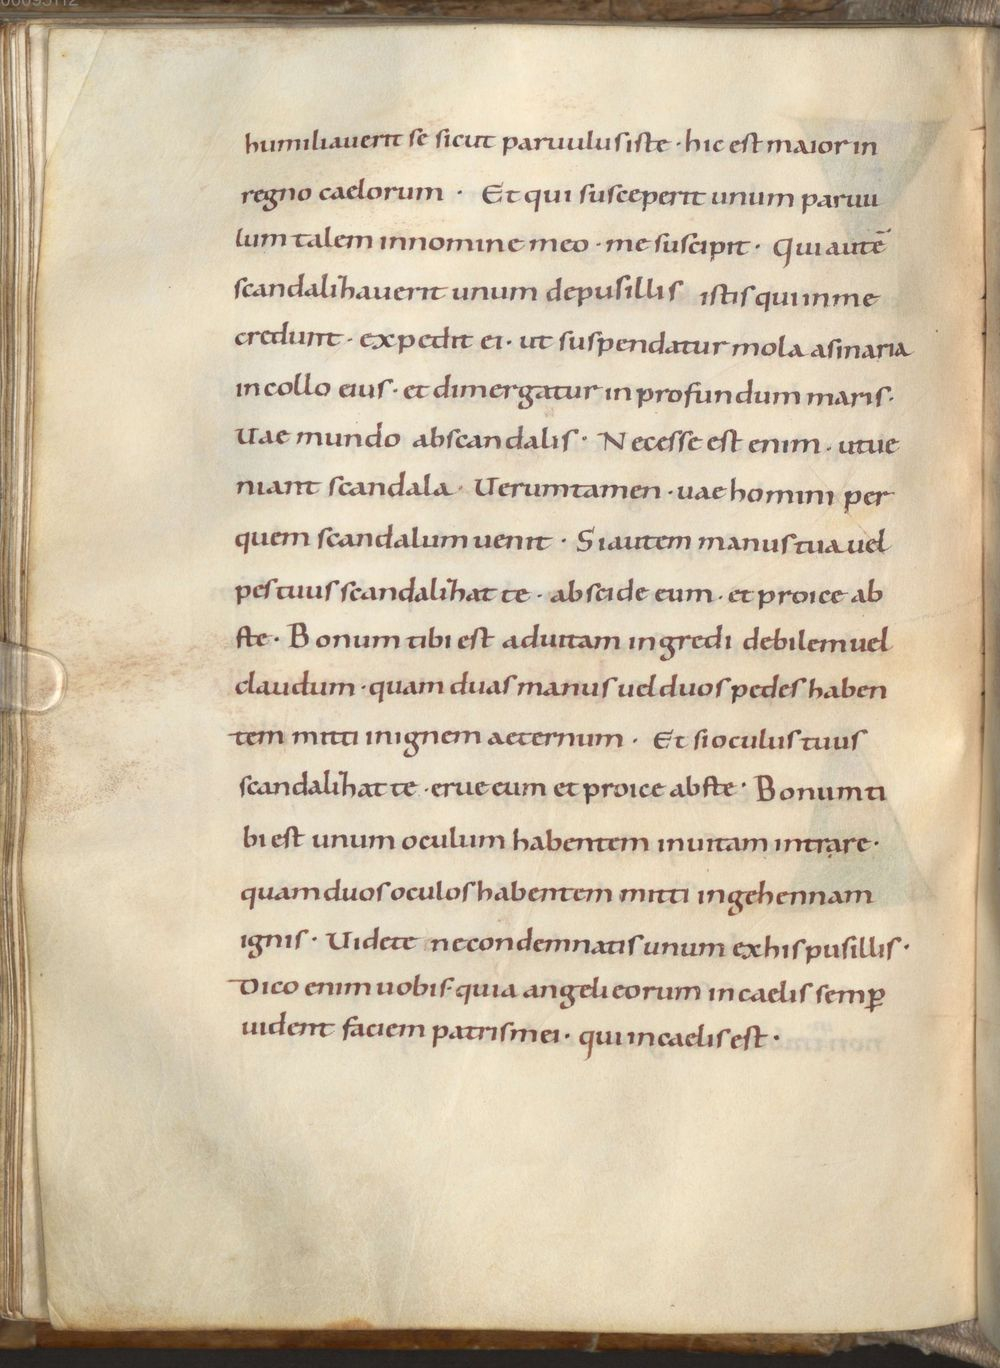 humiliauerit se sicut paruulus iste · hic est maior in
regno caelorum · Et qui susceperit unum paruu
lum talem in nomine meo · me suscipit · Qui autē
scandalizauerit unum de pusillis istis qui in me
credunt · expedit ei · ut suspendatur mola asinaria
in collo eius · et dimergatur in profundum maris ·
Uae mundo ab scandalis · Necesse est enim · ut ue
niant scandala · Uerumtamen · uae homini per
quem scandalum uenit · Si autem manus tua uel
pes tuus scandalizat te · abscide eum · et proice ab
ste · Bonum tibi est ad uitam ingredi debilem uel
claudum · quam duas manus uel duos pedes haben
tem mitti in ignem aeternum · Et si oculus tuus
scandalizat te · erue eum et proice abste · Bonum ti
bi est unum oculum habentem in uitam intrare ·
quam duos oculos habentem mitti in gehennam
ignis · Uidete ne condemnatis unum ex his pusillis ·
Dico enim uobis · quia angeli eorum in caelis semꝑ
uident faciem patris mei · qui in caelis est ·